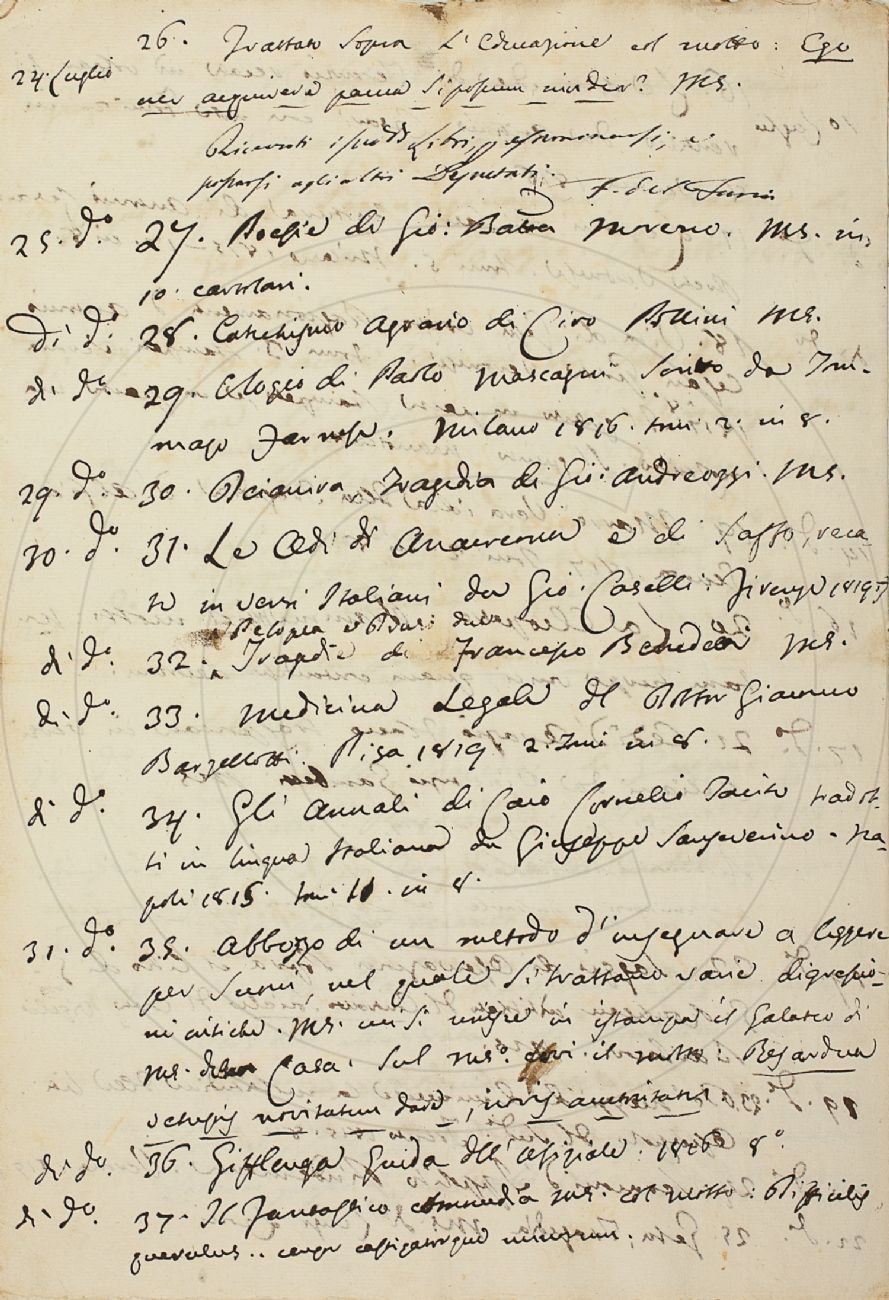 26. Trattato sopra L'Educazione col motto: Ego
24. Luglio
nec acquirere pauca si possum invideor? MS.
Ricevuti i sudd. Libri, e
passarsi agli altri Deputati.
F. del Furia
25. d.o 27. Poesie di Gio: Batta Moreno. MS. in
10. cartolari.
di d.o 28. Catechismo agrario di Ciro Pollini MS.
di d.o 29. Elogio di Paolo Mascagni Scritto da Tom-
maso Farnese. Milano 1816. tomi 2. in 8.
29. d.o 30. Deianira Tragedia di Gio: Andreozzi. MS.
30. d.o 31. Le Odi di Anacreonte e di Saffo, reca-
te in versi Italiani da Gio. Caselli. Firenze 1819.
Pelopea e Druso due
di d.o 32. Tragedie di Francesco Benedetti MS.
di d.o 33. Medicina Legale del Dottor Giacomo
Barzellotti. Pisa 1819 2. Tomi in 8.
di d.o 34. Gli Annali di Caio Cornelio Tacito tradot-
ti in lingua Italiana da Giuseppe Sanseverino. Na-
poli 1815. tomi 11. in 8.
31. d.o 35. Abbozzo di un metodo d'insegnare a leggere
per Suoni, nel quale si trattano varie digressio-
ni critiche. MS. cui si unisce in istampa il Galateo di
MS. della Casa. Sul MS.o evvi il motto: Res ardua
vetustis novitatem dare, novis auctoritatem
di d.o 36. Gifflenga Guida dell'ufiziale. 1816 8.o
di d.o 37. Il Fantastico commedia MS. col motto: Difficilis
querulus.. censor castigatorque minorum.